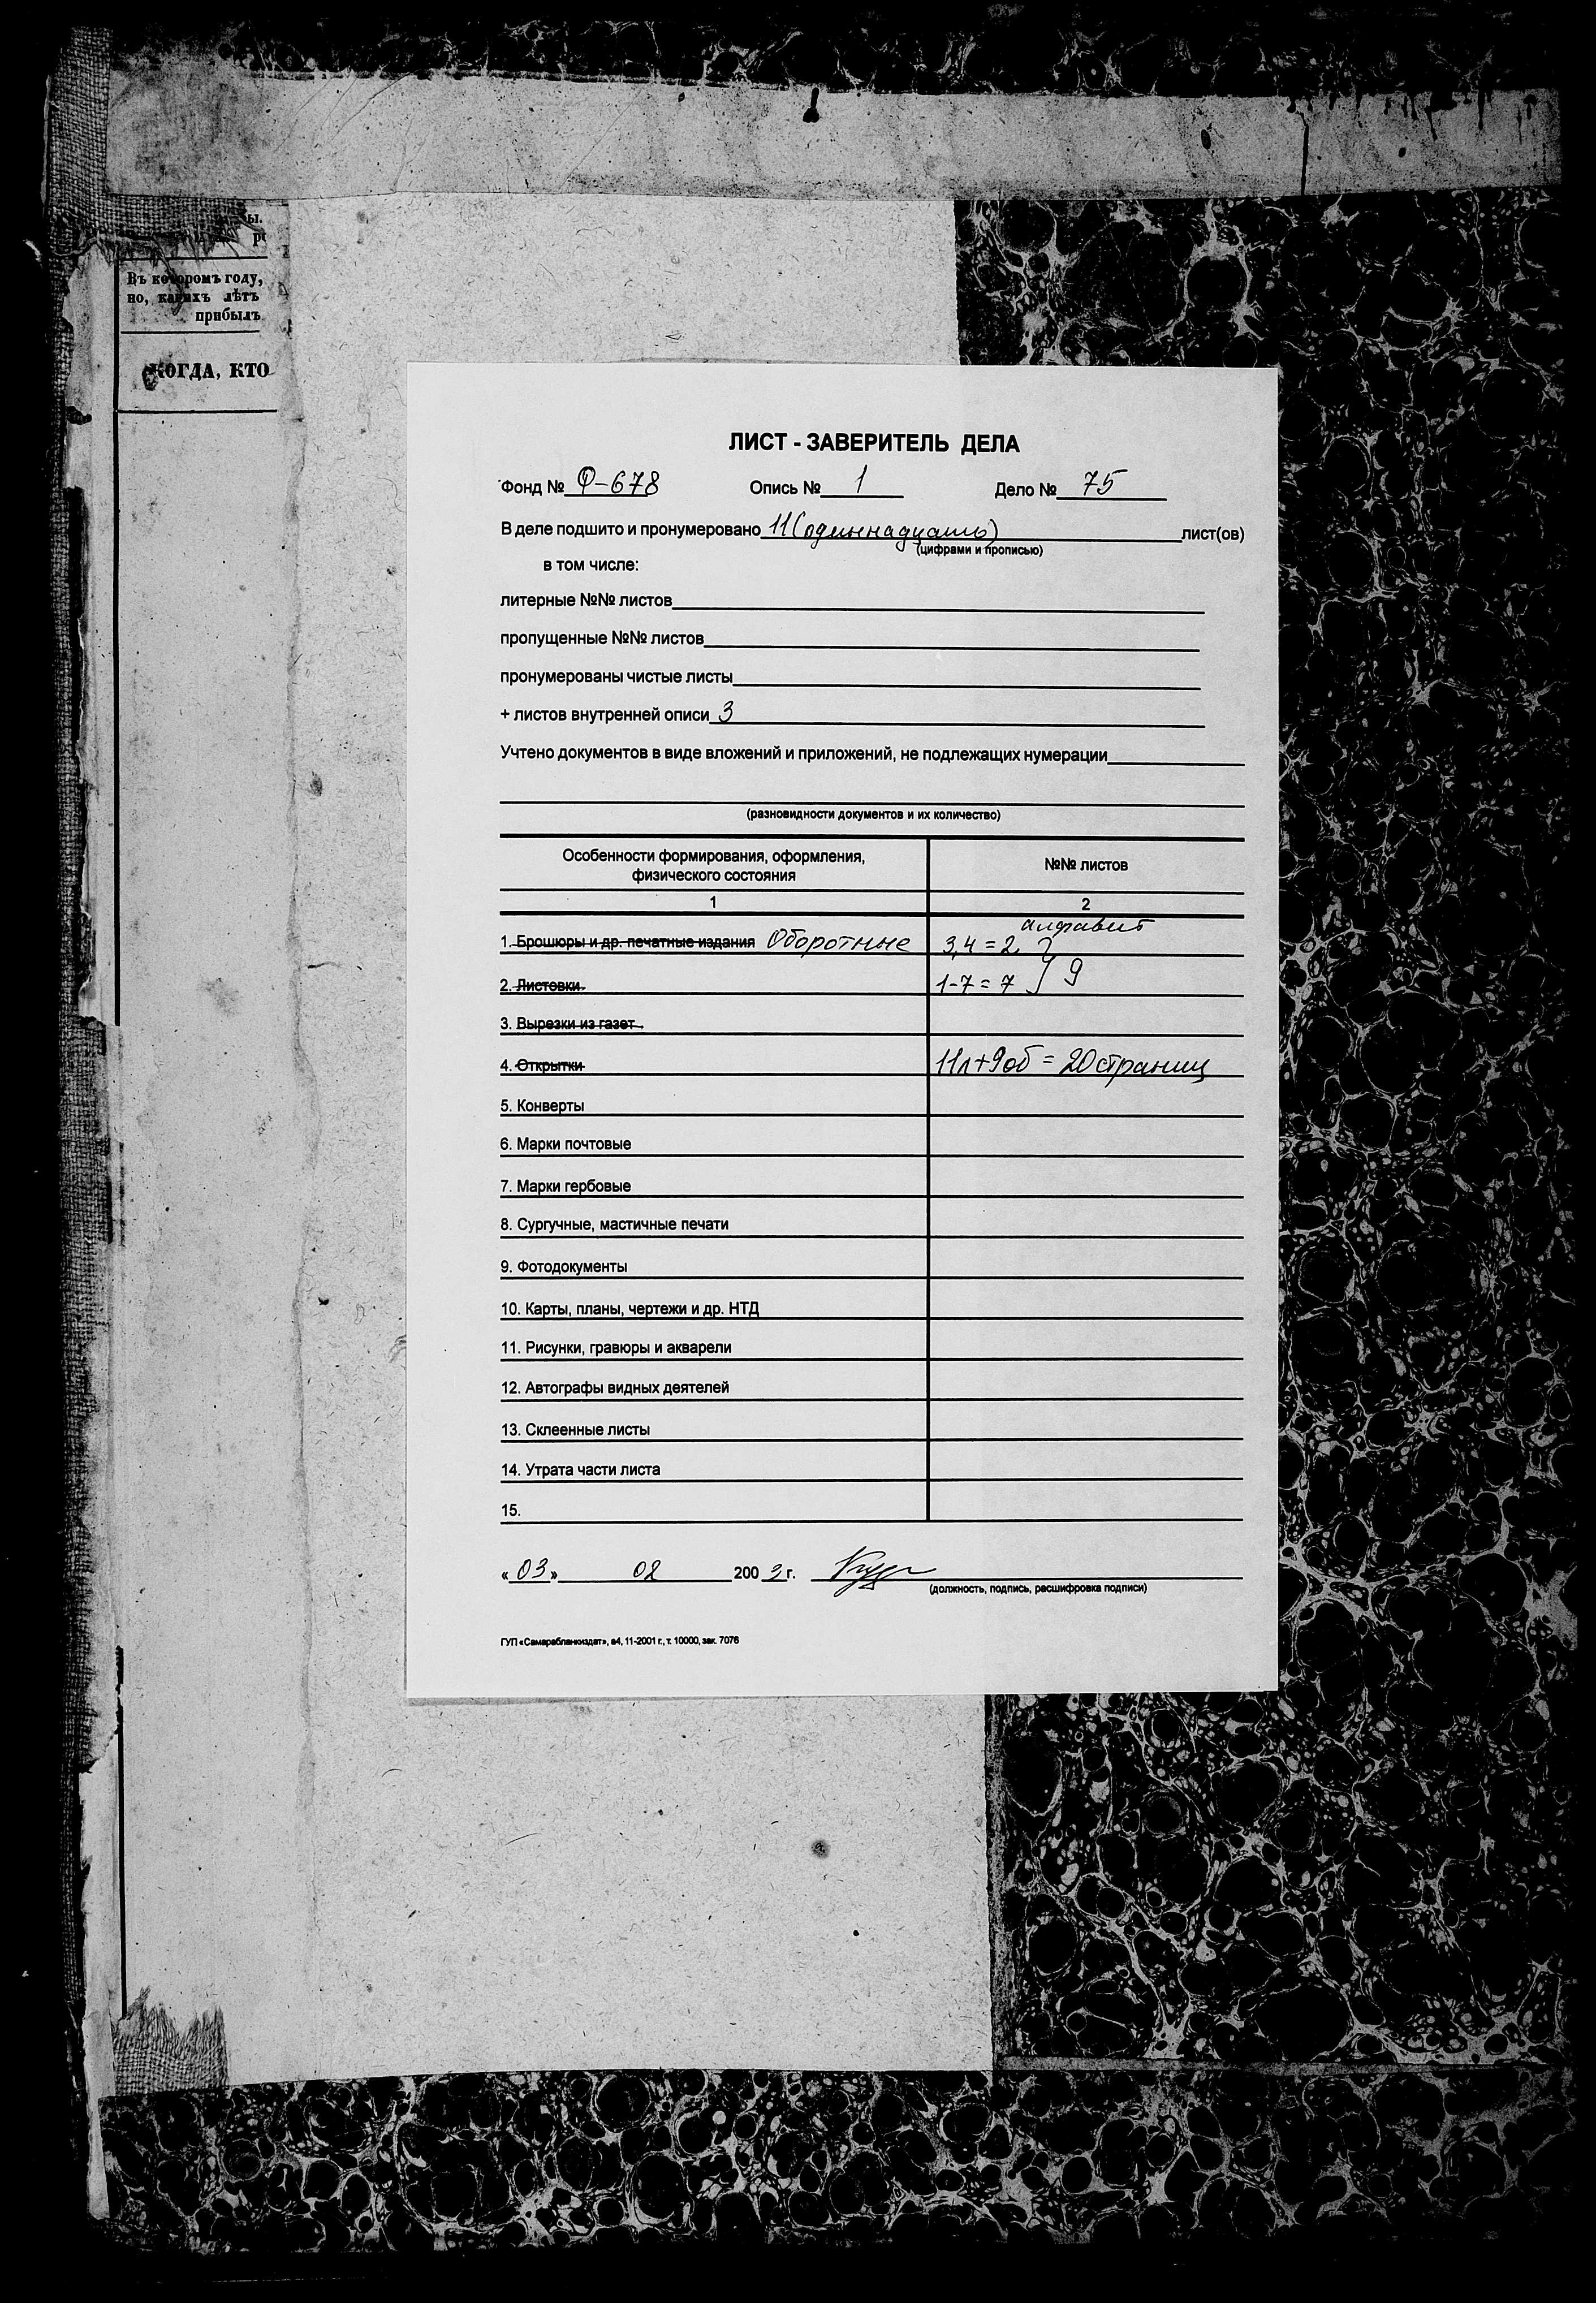 ы.
Въ которомъ году,
но, какихъ лѣтъ
прибылъ
КОГДА, КТО
ЛИСТ - ЗАВЕРИТЕЛЬ ДЕЛА
Фонд № Ф-678 Опись № 1 Дело № 75
В деле подшито и пронумеровано 11 (одиннадцать) лист(ов)
(цифрами и прописью)
в том числе:
литерные №№ листов
пропущенные №№ листов
пронумерованы чистые листы
+ листов внутренней описи 3
Учтено документов в виде вложений и приложений, не подлежащих нумерации
(разновидности документов и их количество)
Особенности формирования, оформления,
физического состояния
№№ листов
1 2
алфавит
1. Брошюры и др. печатные издания Оборотные 3,4 = 2
2. Листовки 1-7 = 7 } 9
3. Вырезки из газет
4. Открытки 11л+9об = 20 страниц
5. Конверты
6. Марки почтовые
7. Марки гербовые
8. Сургучные, мастичные печати
9. Фотодокументы
10. Карты, планы, чертежи и др. НТД
11. Рисунки, гравюры и акварели
12. Автографы видных деятелей
13. Склеенные листы
14. Утрата части листа
15.
« 03 » 02 200 3 г.
(должность, подпись, расшифровка подписи)
ГУП «Самарабланкиздат», а4, 11-2001 г., т. 10000, зак. 7076